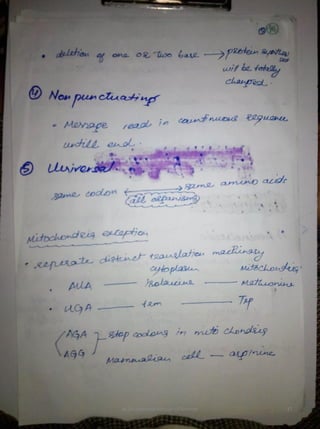 • deletion of one or two base → protein synthesis
will be totally
changed
④ Nonpunctuating
• Message read in countinuous sequence
untill end.
⑤ Universal
same codon ↔ same amino acids
all organisms
Mitochondria exception
• seperate distinct translation machinary
cytoplasm mitochondria
• AUA — isolucine — Methionine
• UGA — tem — Trp
AGA
AGG } stop codons in mitochondria
Mammalian cell — arginine